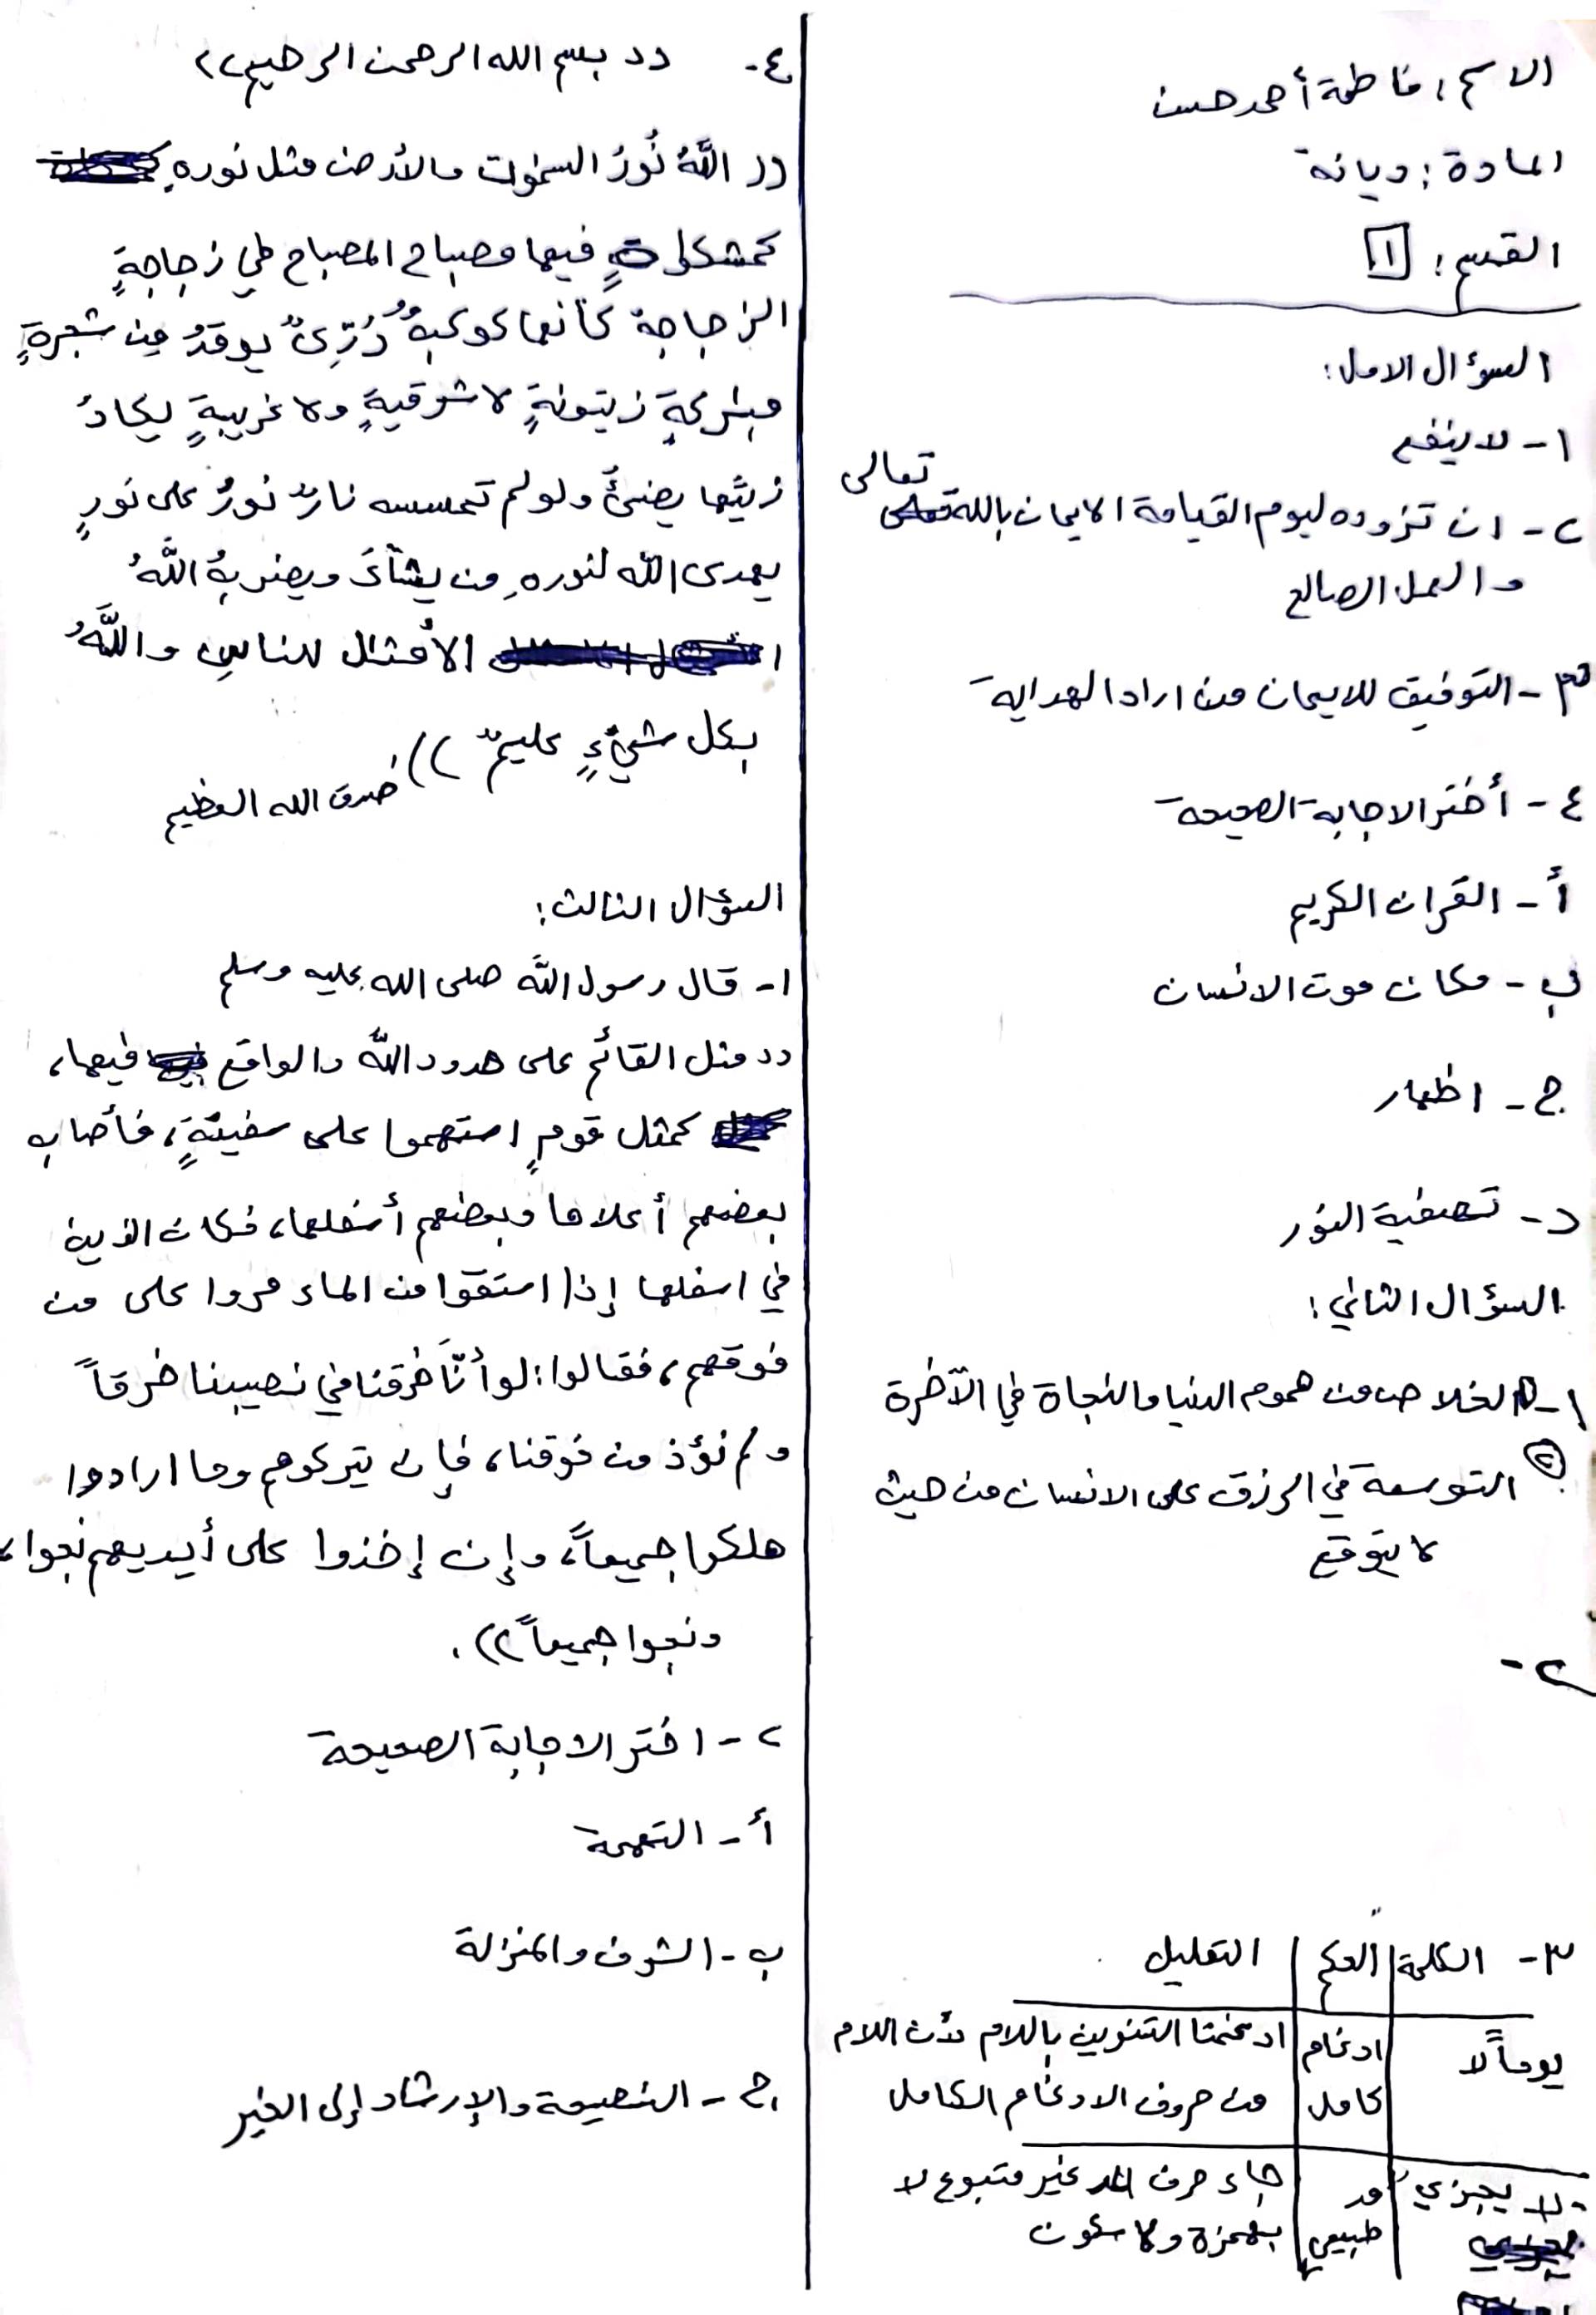 الاسم: فاطمة أحمد حسن
المادة: ديانة
القسم: 1
السؤال الاول:
١- لا ينفع
٢- ان تزوده ليوم القيامة الايمان بالله تعالى
و العمل الصالح
٣- التوفيق للايمان من اراد الهداية
٤- أختر الاجابة الصحيحة
أ- القران الكريم
ب- مكان موت الانسان
ج- اظهار
د- تصفية النور
السؤال الثاني:
١- الخلاص من هموم الدنيا والنجاة في الآخرة
٢ التوسعة في الرزق على الانسان من حيث
لا يتوقع
٢-
٣- الكلمة الحكم التعليل
يوماً لا ادغام كامل ادغمتا التنوين باللام لأن اللام
من حروف الادغام الكامل
لا يجزي مد طبيعي جاء حرف المد غير متبوع لا
بهمزة ولا سكون
٤- (( بسم الله الرحمن الرحيم ))
(( اللَّهُ نُورُ السمٰوات والأرض مثل نورهِ
كمشكاةٍ فيها مصباح المصباح في زجاجةٍ
الزجاجة كأنها كوكبٌ دُرِّىٌ يوقدُ من شجرةٍ
مبٰركةٍ زيتونةٍ لا شرقيةٍ ولا غربيةٍ يكادُ
زيتُها يضىُٔ ولو لم تمسسه نارٌ نورٌ على نورٍ
يهدى الله لنورهِ من يشآءُ ويضربُ اللَّهُ
الأمثٰل للناسِ واللَّهُ
بكل شيءٍ عليمٌ )) صدق الله العظيم
السؤال الثالث:
١- قال رسول اللَّه صلى الله عليه وسلم
(( مثل القائم على حدود اللَّه والواقع فيها،
كمثل قومٍ استهموا على سفينةٍ، فأصاب
بعضهم أعلاها وبعضهم أسفلها، فكان الذين
في اسفلها إذا استقوا من الماء مروا على من
فوقهم، فقالوا: لو أنَّا خرقنا في نصيبنا خرقاً
ولم نؤذ من فوقنا، فإن يتركوهم وما ارادوا
هلكوا جميعاً، وإن إخذوا على أيديهم نجوا،
ونجوا جميعاً )).
٢- اختر الاجابة الصحيحة
أ- التهمة
ب- الشرف والمنزلة
ج- النصيحة والإرشاد إلى الخير